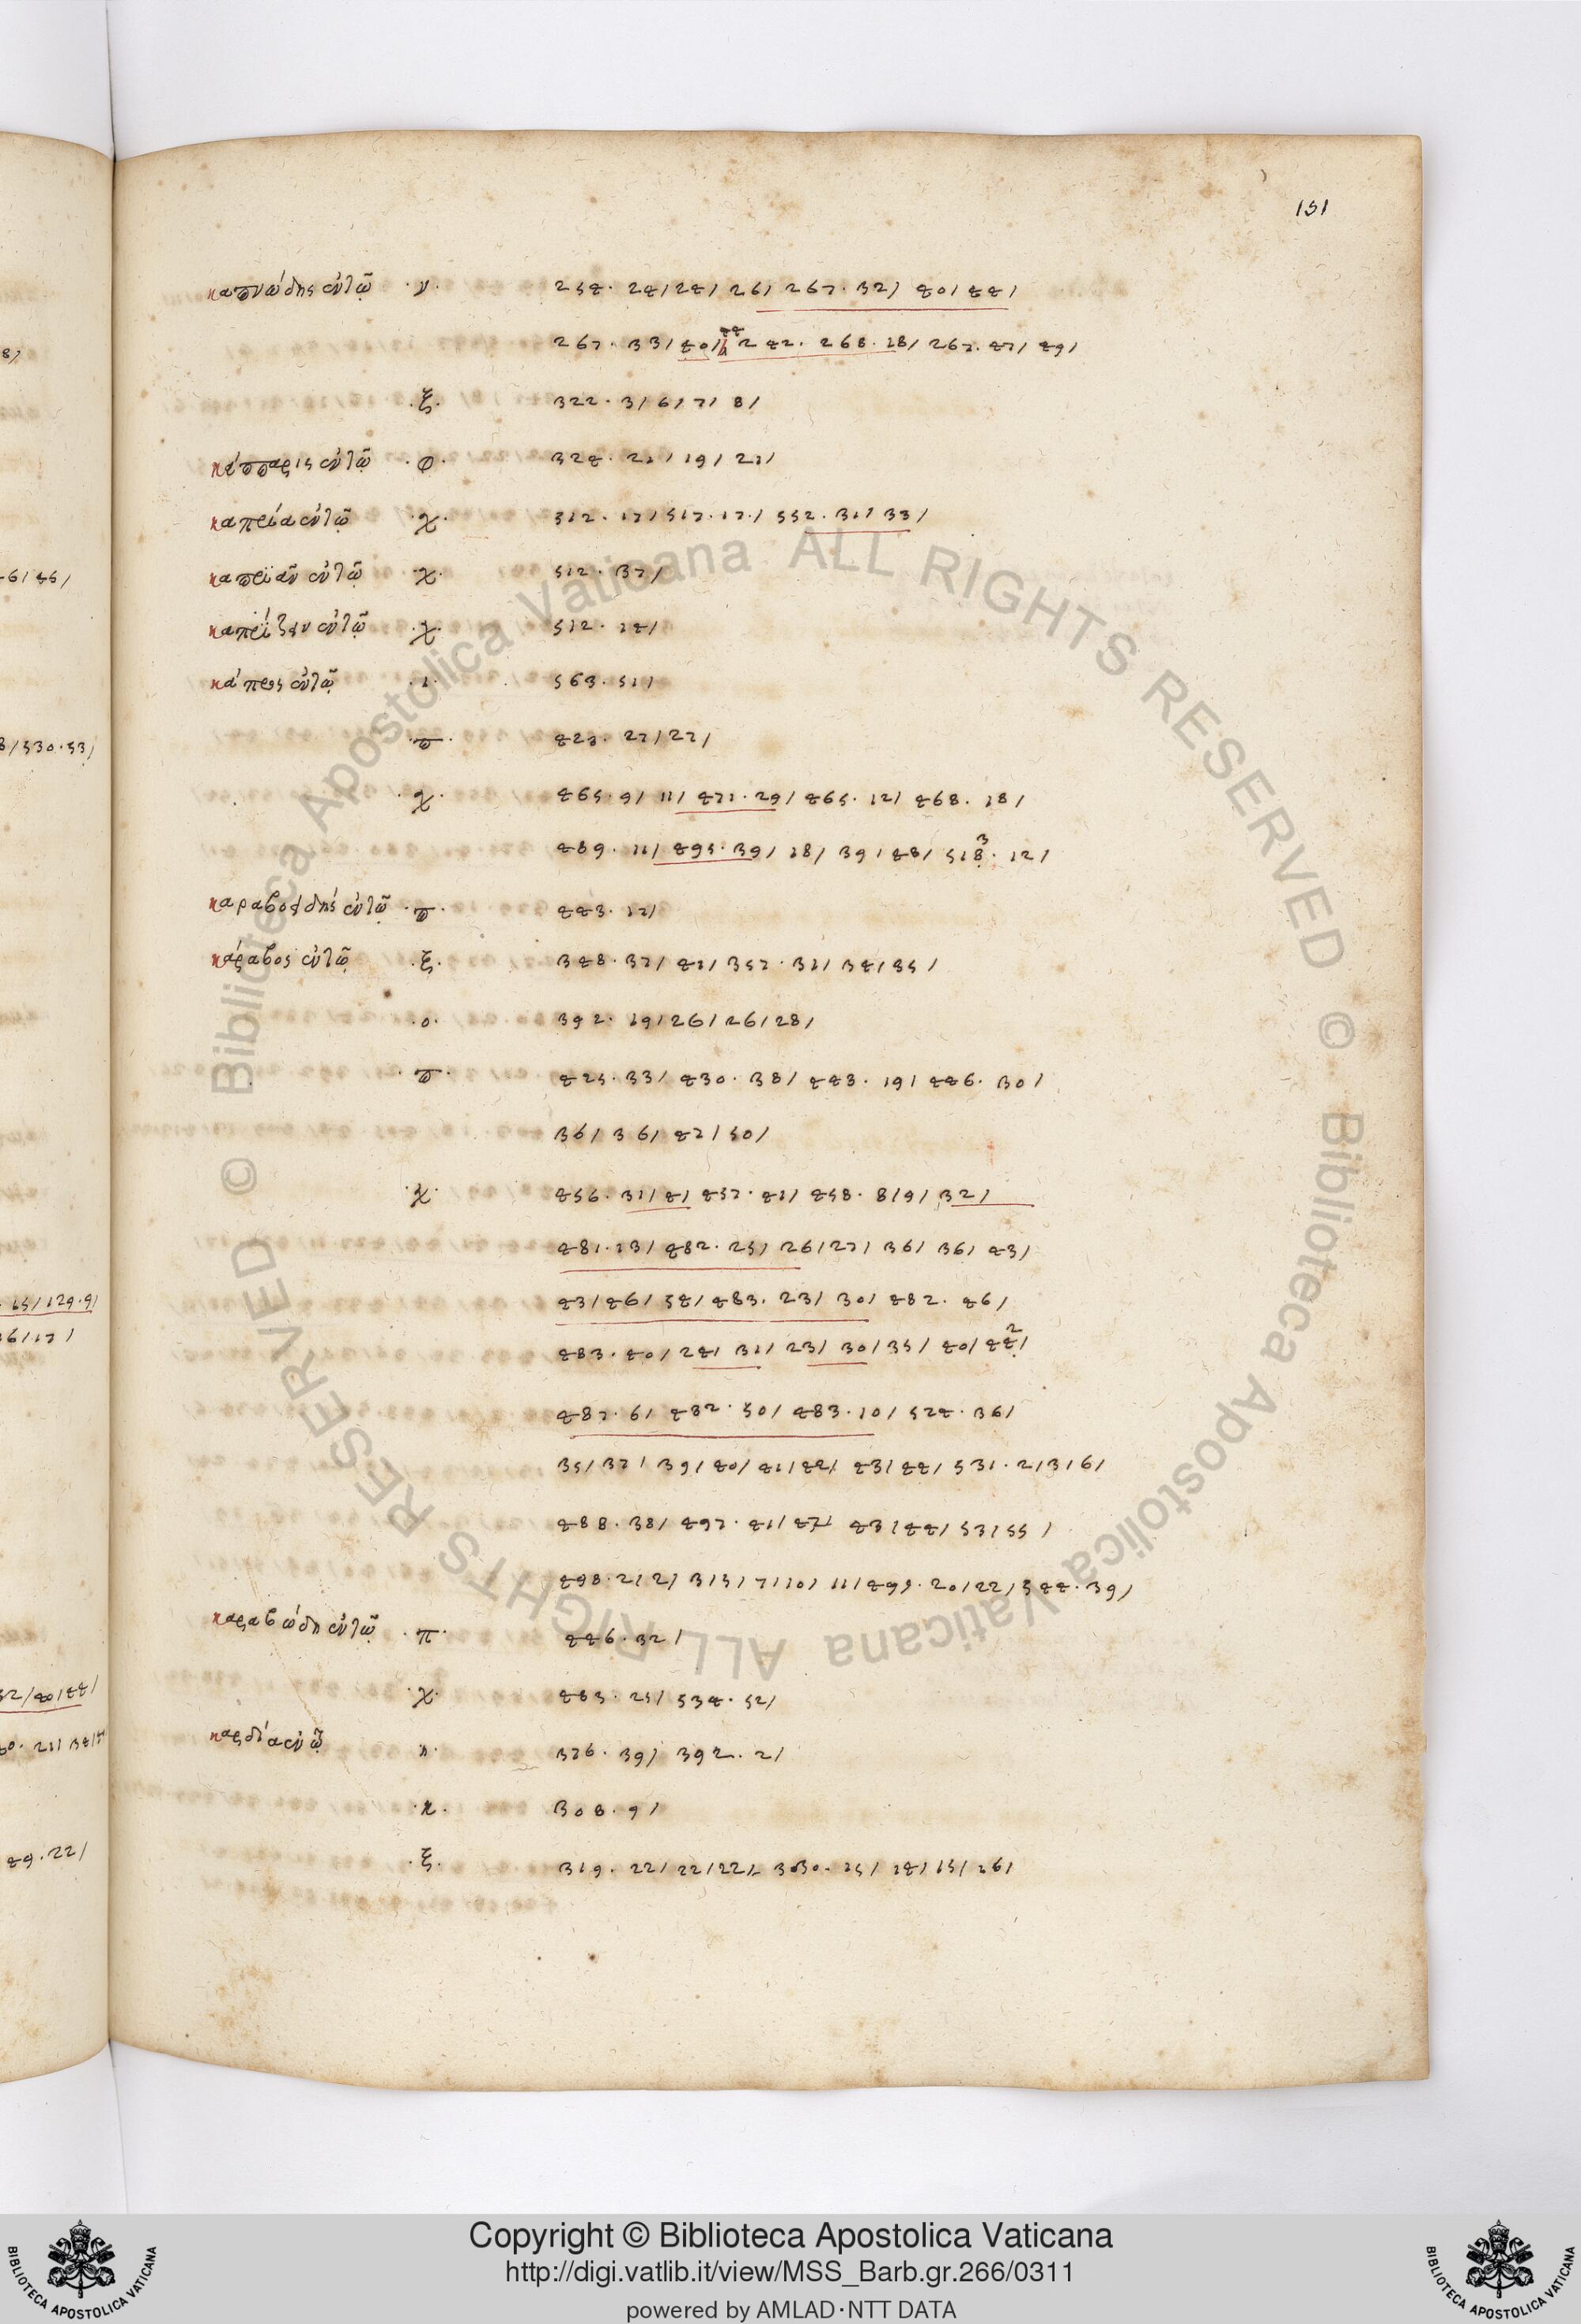 151
καπνώδης ἐν τῷ · ν · 254 · 24 / 24 / 26 / 267 · 32 / 40 / 44 /
267 · 33 / 40 / 242 · 268 · 18 / 267 · 47 / 49 /
· ξ · 322 · 3 / 6 / 7 / 8 /
κάππαρις ἐν τῷ · φ · 324 · 21 / 19 / 21 /
καπρία ἐν τῷ · χ · 512 · 17 / 517 · 17 · / 552 · 31 / 33 /
καπριᾶν ἐν τῷ · χ · 512 · 37 /
καπρίζειν ἐν τῷ · χ · 512 · 14 /
κάπρος ἐν τῷ · ι · 563 · 51 /
· π · 423 · 27 / 27 /
· χ · 465 · 9 / 11 / 471 · 29 / 465 · 12 / 468 · 18 /
489 · 11 / 495 · 39 / 18 / 39 / 48 / 518 · 12 /
καραβοειδής ἐν τῷ · π · 443 · 12 /
κάραβος ἐν τῷ · ξ · 348 · 37 / 41 / 357 · 31 / 34 / 35 /
· ο · 392 · 19 / 26 / 26 / 28 /
· π · 425 · 33 / 430 · 38 / 443 · 19 / 446 · 30 /
36 / 36 / 42 / 50 /
· χ · 456 · 31 / 41 / 457 · 41 / 458 · 8 / 9 / 32 /
481 · 13 / 482 · 25 / 26 / 27 / 36 / 36 / 43 /
43 / 46 / 54 / 483 · 23 / 30 / 482 · 46 /
483 · 40 / 24 / 31 / 23 / 30 / 35 / 40 / 44 /
487 · 6 / 482 · 50 / 483 · 10 / 524 · 36 /
35 / 37 / 39 / 40 / 41 / 42 / 43 / 44 / 531 · 2 / 3 / 6 /
488 · 38 / 497 · 41 / 47 / 43 / 44 / 53 / 55 /
498 · 2 / 2 / 3 / 5 / 7 / 10 / 11 / 499 · 20 / 22 / 544 · 39 /
καραβώδη ἐν τῷ · π · 446 · 32 /
· χ · 485 · 25 / 534 · 52 /
καρδία ἐν τῷ 376 · 39 / 392 · 2 /
· κ · 308 · 9 /
· ξ · 319 · 22 / 22 / 22 / 330 · 15 / 14 / 15 / 16 /
© Biblioteca Apostolica Vaticana ALL RIGHTS RESERVED © Biblioteca Apostolica Vaticana ALL RIGHTS RESERVED
Copyright © Biblioteca Apostolica Vaticana
http://digi.vatlib.it/view/MSS_Barb.gr.266/0311
powered by AMLAD·NTT DATA
BIBLIOTECA APOSTOLICA VATICANA
BIBLIOTECA APOSTOLICA VATICANA